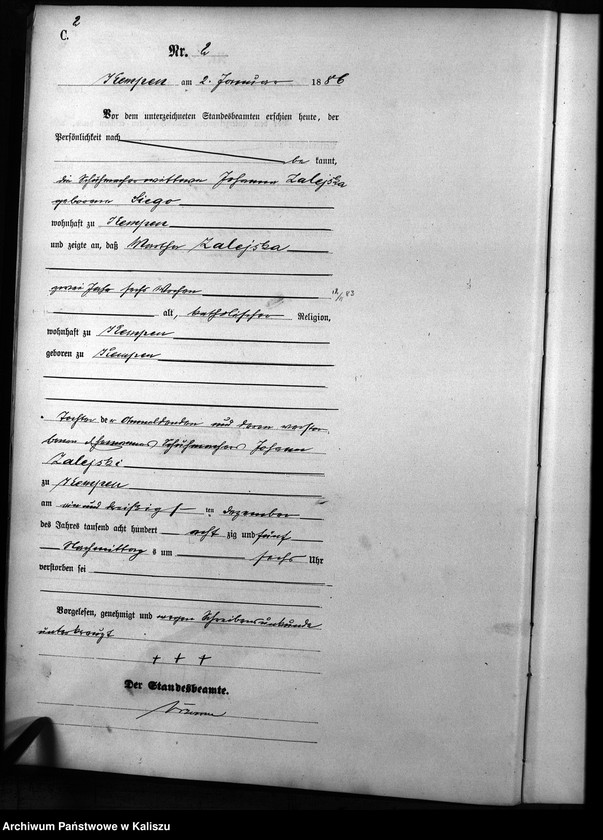 2
C.
Nr. 2
Kempen am 2. Januar 1886
Vor dem unterzeichneten Standesbeamten erschien heute, der
Persönlichkeit nach
be kannt,
die Schuhmacherwittwe Johanna Zalejska
geborene Siego
wohnhaft zu Kempen
und zeigte an, daß Martha Zalejska
zwei Jahr sechs Wochen
alt, katholischer Religion,
wohnhaft zu Kempen
geboren zu Kempen
Tochter der Anmeldenden und deren verstor
benen Ehemannes Schuhmachers Johann
Zalejski
zu Kempen
am ein und dreißig ten Dezember
des Jahres tausend acht hundert acht zig und fünf
Nachmittag s um sechs Uhr
verstorben sei
Vorgelesen, genehmigt und wegen Schreibensunkunde
unterkreuzt
+ + +
Der Standesbeamte.
Archiwum Państwowe w Kaliszu